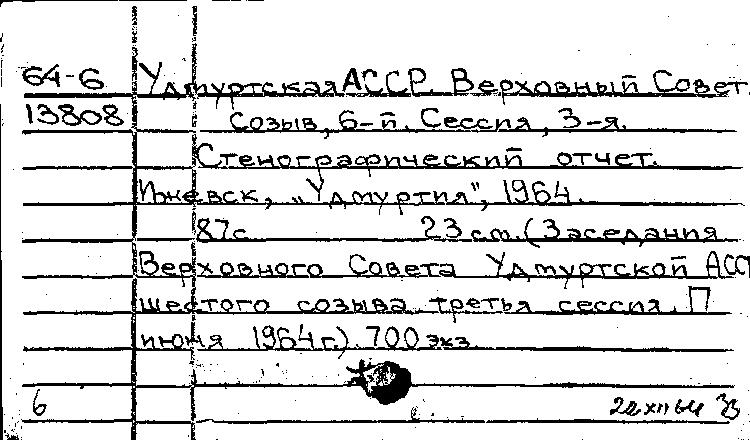 64-6 Удмуртская АССР. Верховный Совет.
13808 Созыв, 6-й. Сессия, 3-я.
Стенографический отчет.
Ижевск, „Удмуртия", 1964.
87с 23 см. (Заседания
Верховного Совета Удмуртской АССР
шестого созыва третья сессия. П
июня 1964 г.). 700 экз.
6 22 XII 64